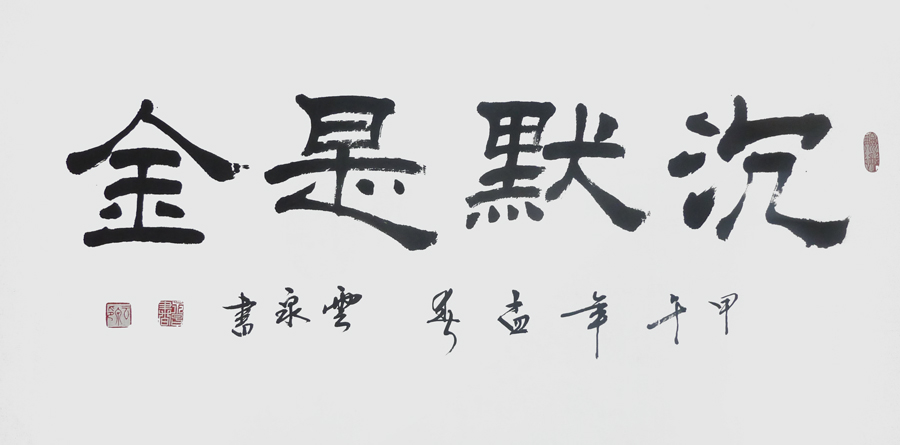 沉默是金
甲午年孟春 雲泉書